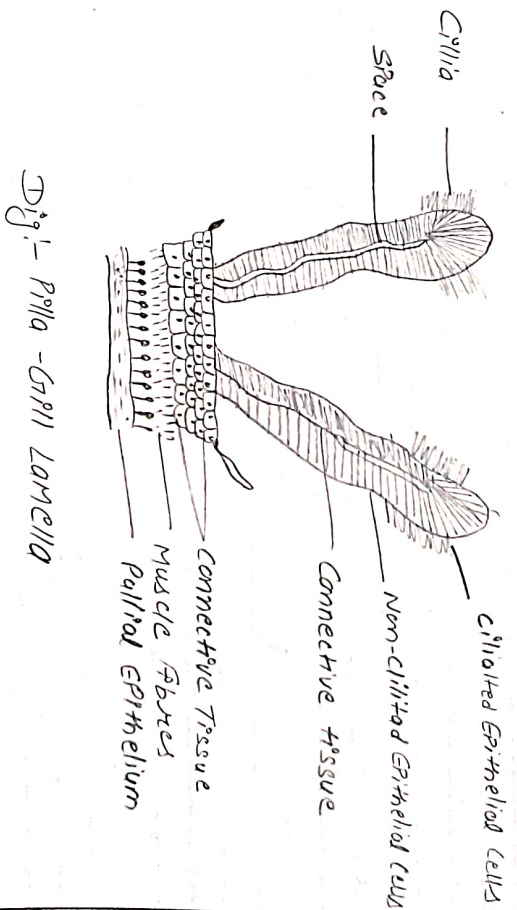 Cillia
Space
Cilialted Epithelial Cells
Non-Cillitad Epithelial Cells
Connective tissue
Connective Tissue
Muscle Fibres
Pallial Epithelium
Dig:- Pilla -Gill Lamella